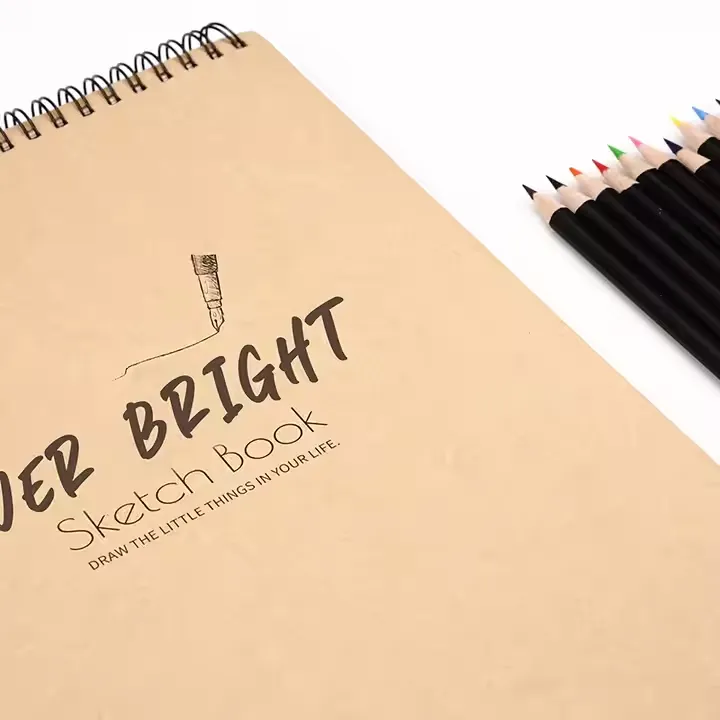 VER BRIGHT
Sketch Book
DRAW THE LITTLE THINGS IN YOUR LIFE.